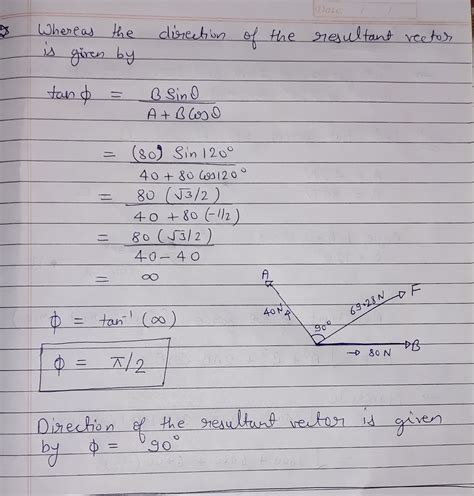 Whereas the direction of the resultant vector
is given by
tan ϕ = B Sinθ / A + B Cosθ
= (80) Sin 120° / 40 + 80 Cos 120°
= 80 (√3/2) / 40 + 80 (-1/2)
= 80 (√3/2) / 40 - 40
= ∞
ϕ = tan⁻¹ (∞)
ϕ = π/2
A
40 N
90°
69.28 N
F
→ 80 N
B
Direction of the resultant vector is given
by ϕ = 90°